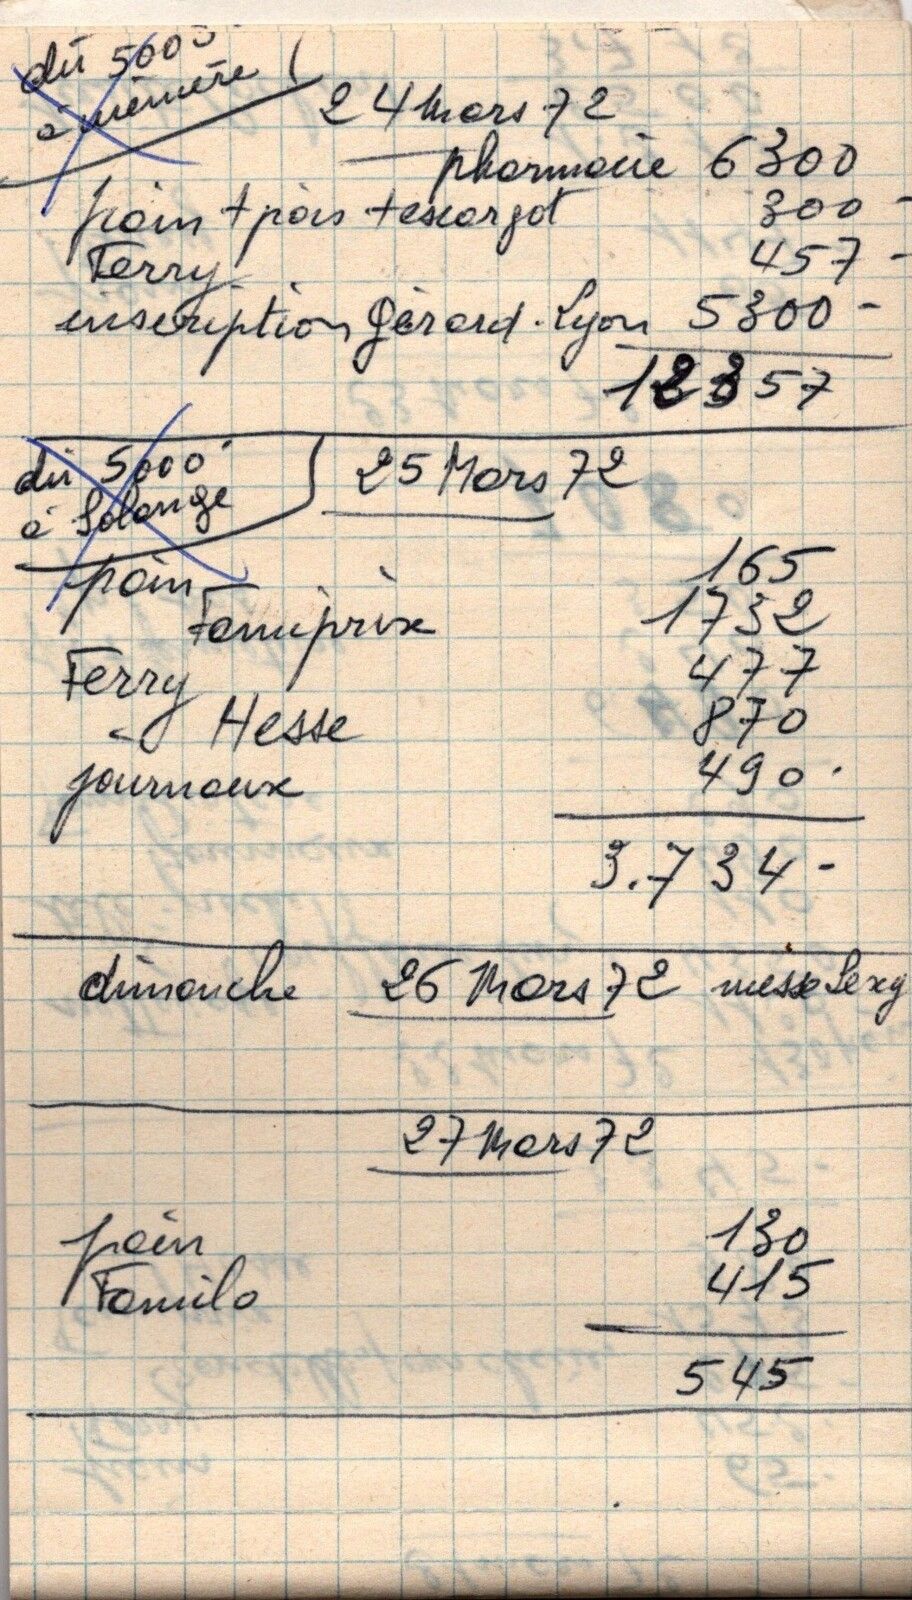 dû 5000
à mémère
24 Mars 72
pharmacie 6300
pain + pois + escargot 300 -
Ferry 457 -
inscription Gérard. Lyon 5300 -
12357
dû 5000
à Solange
25 Mars 72
pain 165
Famiprix 1732
Ferry 477
Hesse 870
journaux 490.
3.734 -
dimanche 26 Mars 72 messe Sexy
27 Mars 72
pain 130
Familo 415
545